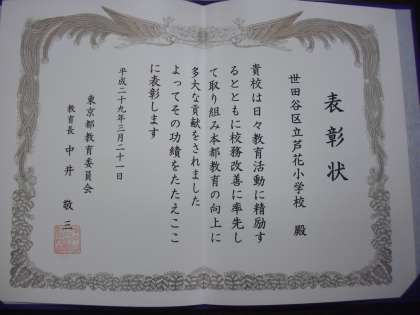 表彰状
世田谷区立芦花小学校 殿
貴校は日々教育活動に精励す
るとともに校務改善に率先し
て取り組み本都教育の向上に
多大な貢献をされました
よってその功績をたたえここ
に表彰します
平成二十九年三月二十一日
東京都教育委員会
教育長 中井 敬三